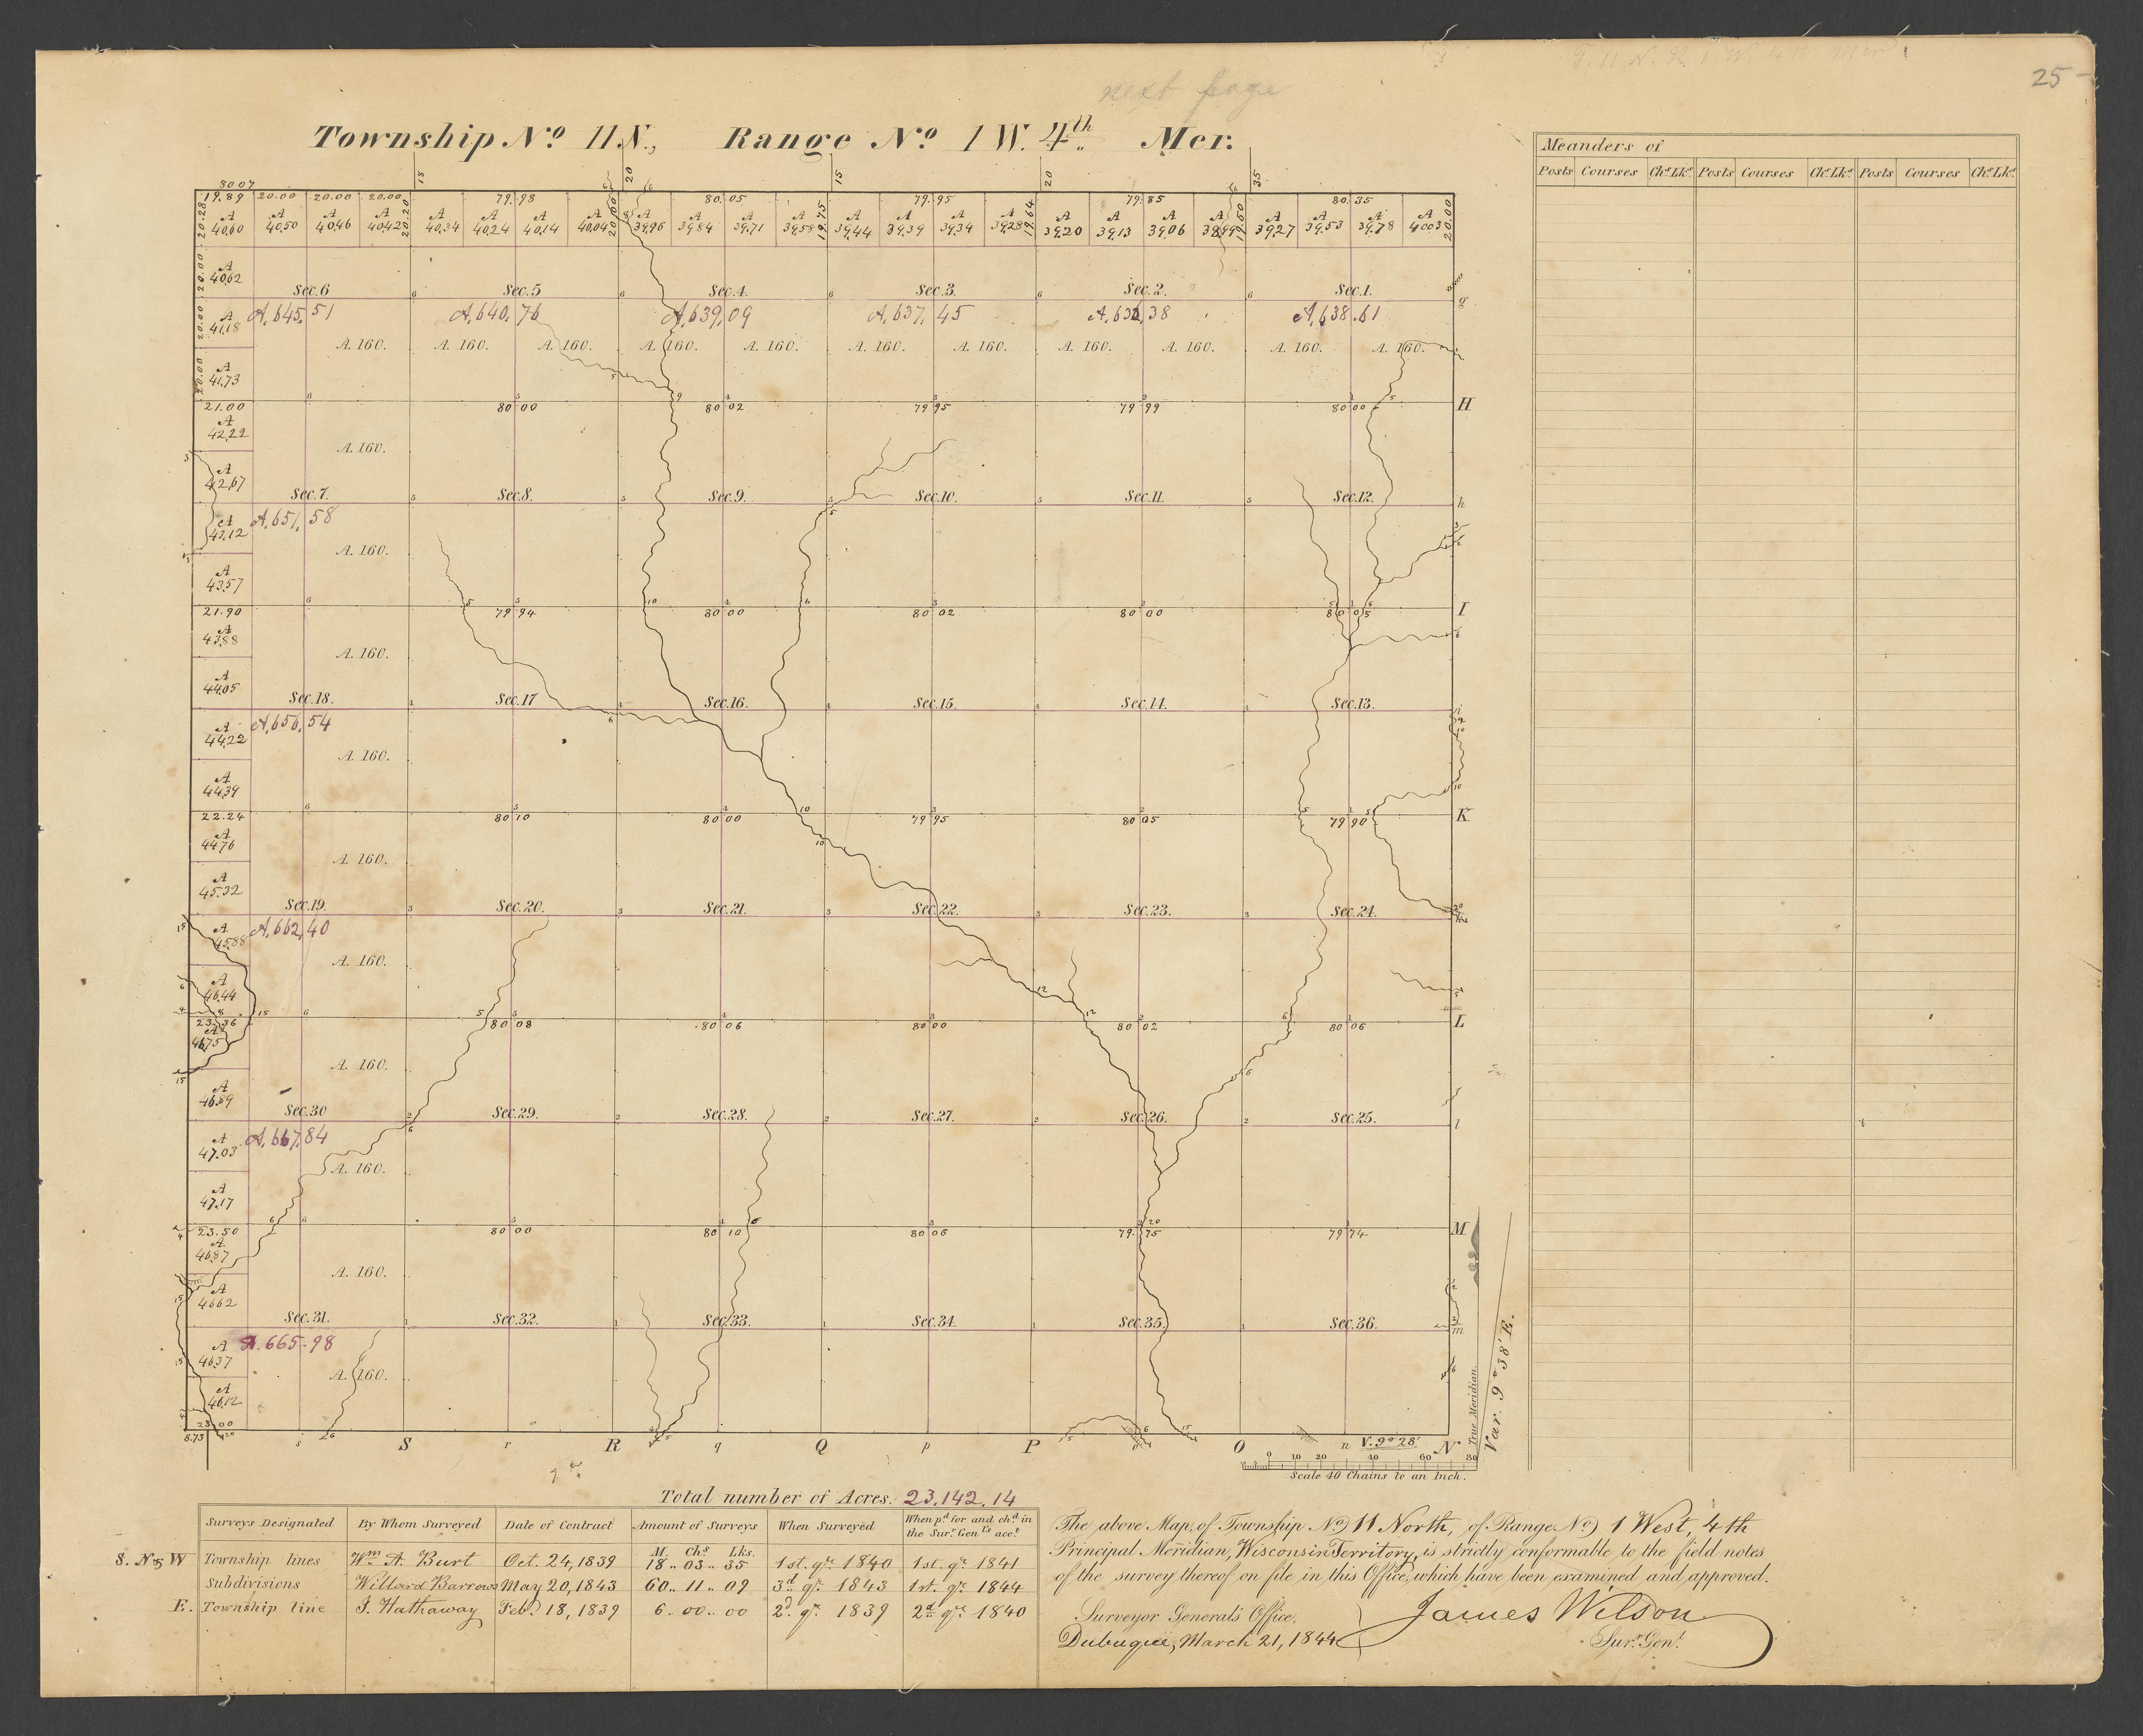 25
next page
Township No. 11 N., Range No. 1 W. 4th Mer.
Meanders of
Posts Courses Chs. Lks. Posts Courses Chs. Lks. Posts Courses Chs. Lks.
18 20 15 20 35
80 07 79.98 80.05 79.95 79.85 80.35
19.89 20.00 20.00 20.00
A 40,60 A 40,50 A 40,46 A 40,42 A 40,34 A 40,24 A 40,14 A 40,04 A 39,96 A 39,84 A 39,71 A 39,58 A 39,44 A 39,39 A 39,34 A 39,28 A 39,20 A 39,13 A 39,06 A 38,99 A 39,27 A 39,53 A 39,78 A 40,03
20.28 20.20 20.00 19.75 19.64 19.50 20.00
A 40,62
Sec. 6 Sec. 5 Sec. 4. Sec. 3. Sec. 2. Sec. 1. g
A. 645,51 A. 640,76 A. 639,09 A. 637,45 A. 636,38 A. 638.61
A 41,18
A. 160. A. 160. A. 160. A. 160. A. 160. A. 160. A. 160. A. 160. A. 160. A. 160. A. 160.
A 41,73
21.00 80 00 80 02 79 95 79 99 80 00 H
A 42,22
A. 160.
A 42,67
Sec. 7. Sec. 8. Sec. 9. Sec. 10. Sec. 11. Sec. 12. h
A. 651,58
A 43,12
A. 160.
A 43,57
21.90 79 94 80 00 80 02 80 00 80 05 I
A 43,88
A. 160.
A 44,05
Sec. 18. Sec. 17 Sec. 16. Sec. 15. Sec. 14. Sec. 13. i
A. 656,54
A 44,22
A. 160.
A 44,39
22.24 80 10 80 00 79 95 80 05 79 90 K
A 44,76
A. 160.
A 45,32
Sec. 19. Sec. 20. Sec. 21. Sec. 22. Sec. 23. Sec. 24.
A. 662,40
A 45,88
A. 160.
A 46,44
23.36 80 08 80 06 80 00 80 02 80 06 L
A 46,75
A. 160.
A 46,89
Sec. 30 Sec. 29. Sec. 28. Sec. 27. Sec. 26. Sec. 25. l
A. 667,84
A 47,03
A. 160.
A 47,17
23.50 80 00 80 10 80 06 79 75 79 74 M
A 46,87
A. 160.
A 46,62
Sec. 31. Sec. 32. Sec. 33. Sec. 34. Sec. 35. Sec. 36. m
A. 665.98
A 46,37
A. 160.
A 46,12
23.00
8.73 s S r R q Q p P o O n V. 9° 28' N
True Meridian.
Var. 9° 38' E.
0 10 20 40 60 80
Scale 40 Chains to an Inch.
Total number of Acres. 23,142.14
Surveys Designated By Whom Surveyed Date of Contract Amount of Surveys When Surveyed When pd. for and chd. in the Sur. Genls. acct.
M. Chs. Lks.
S. N & W Township lines Wm. A. Burt Oct. 24, 1839 18.. 03.. 35 1st. qr. 1840 1st. qr. 1841
Subdivisions Willard Barrows May 20, 1843 60.. 11.. 09 3d. qr. 1843 1st. qr. 1844
E. Township line J. Hathaway Feb. 18, 1839 6.. 00.. 00 2d. qr. 1839 2d. qr. 1840
The above Map, of Township No. 11 North, of Range No. 1 West, 4th
Principal Meridian, Wisconsin Territory, is strictly conformable to the field notes
of the survey thereof on file in this Office, which have been examined and approved.
Surveyor General's Office.
Dubuque, March 21, 1844
James Wilson
Sur. Genl.